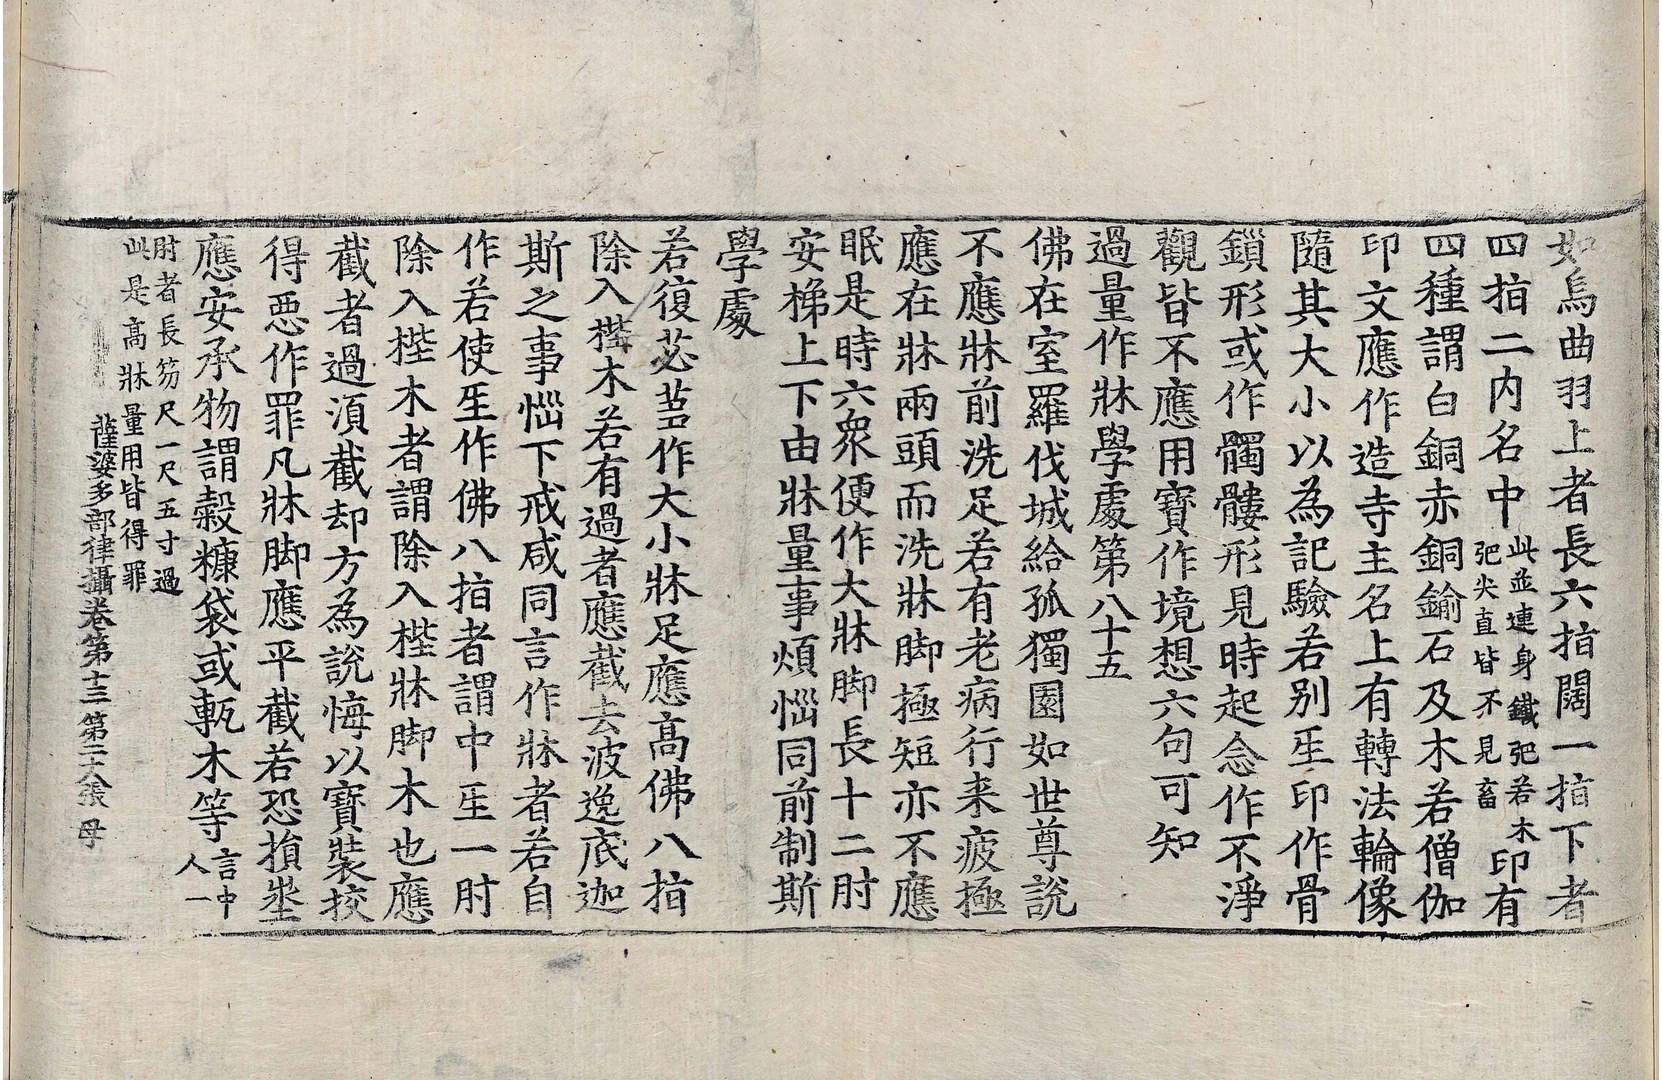 如鳥曲羽上者長六指闊一指下者
四指二內名中此並連身鐵爮若木爮尖直皆不見畜印有
四種謂白銅赤銅鍮石及木若僧伽
印文應作造寺主名上有轉法輪像
隨其大小以為記驗若別𤯔印作骨
鎖形或作髑髏形見時起念作不淨
觀皆不應用寶作境想六句可知
過量作牀學處第八十五
佛在室羅伐城給孤獨園如世尊說
不應牀前洗足若有老病行来疲極
應在牀兩頭而洗牀脚極短亦不應
眠是時六衆便作大牀脚長十二肘
安梯上下由牀量事煩惱同前制斯
學處
若復苾芻作大小牀足應高佛八指
除入梐木若有過者應截去波逸底迦
斯之事惱下戒咸同言作牀者若自
作若使𤯔作佛八指者謂中𤯔一肘
除入梐木者謂除入梐牀脚木也應
截者過湏截却方為說悔以寶裝挍
得惡作罪凡牀脚應平截若恐損㘴
應安承物謂穀糠袋或㼾木等言中人一
肘者長笏尺一尺五寸過
此是高牀量用皆得罪
薩婆多部律攝卷第十三 第二十八張 母